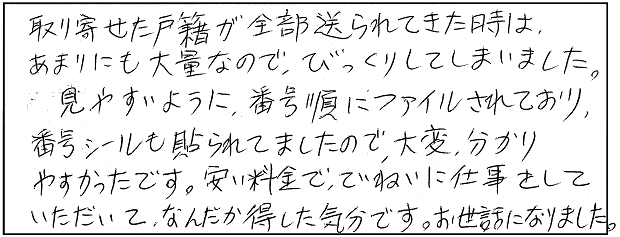 取り寄せた戸籍が全部送られてきた時は、
あまりにも大量なので、びっくりしてしまいました。
見やすいように、番号順にファイルされており、
番号シールも貼られてましたので、大変、分かり
やすかったです。安い料金で、ていねいに仕事をして
いただいて、なんだか得した気分です。お世話になりました。